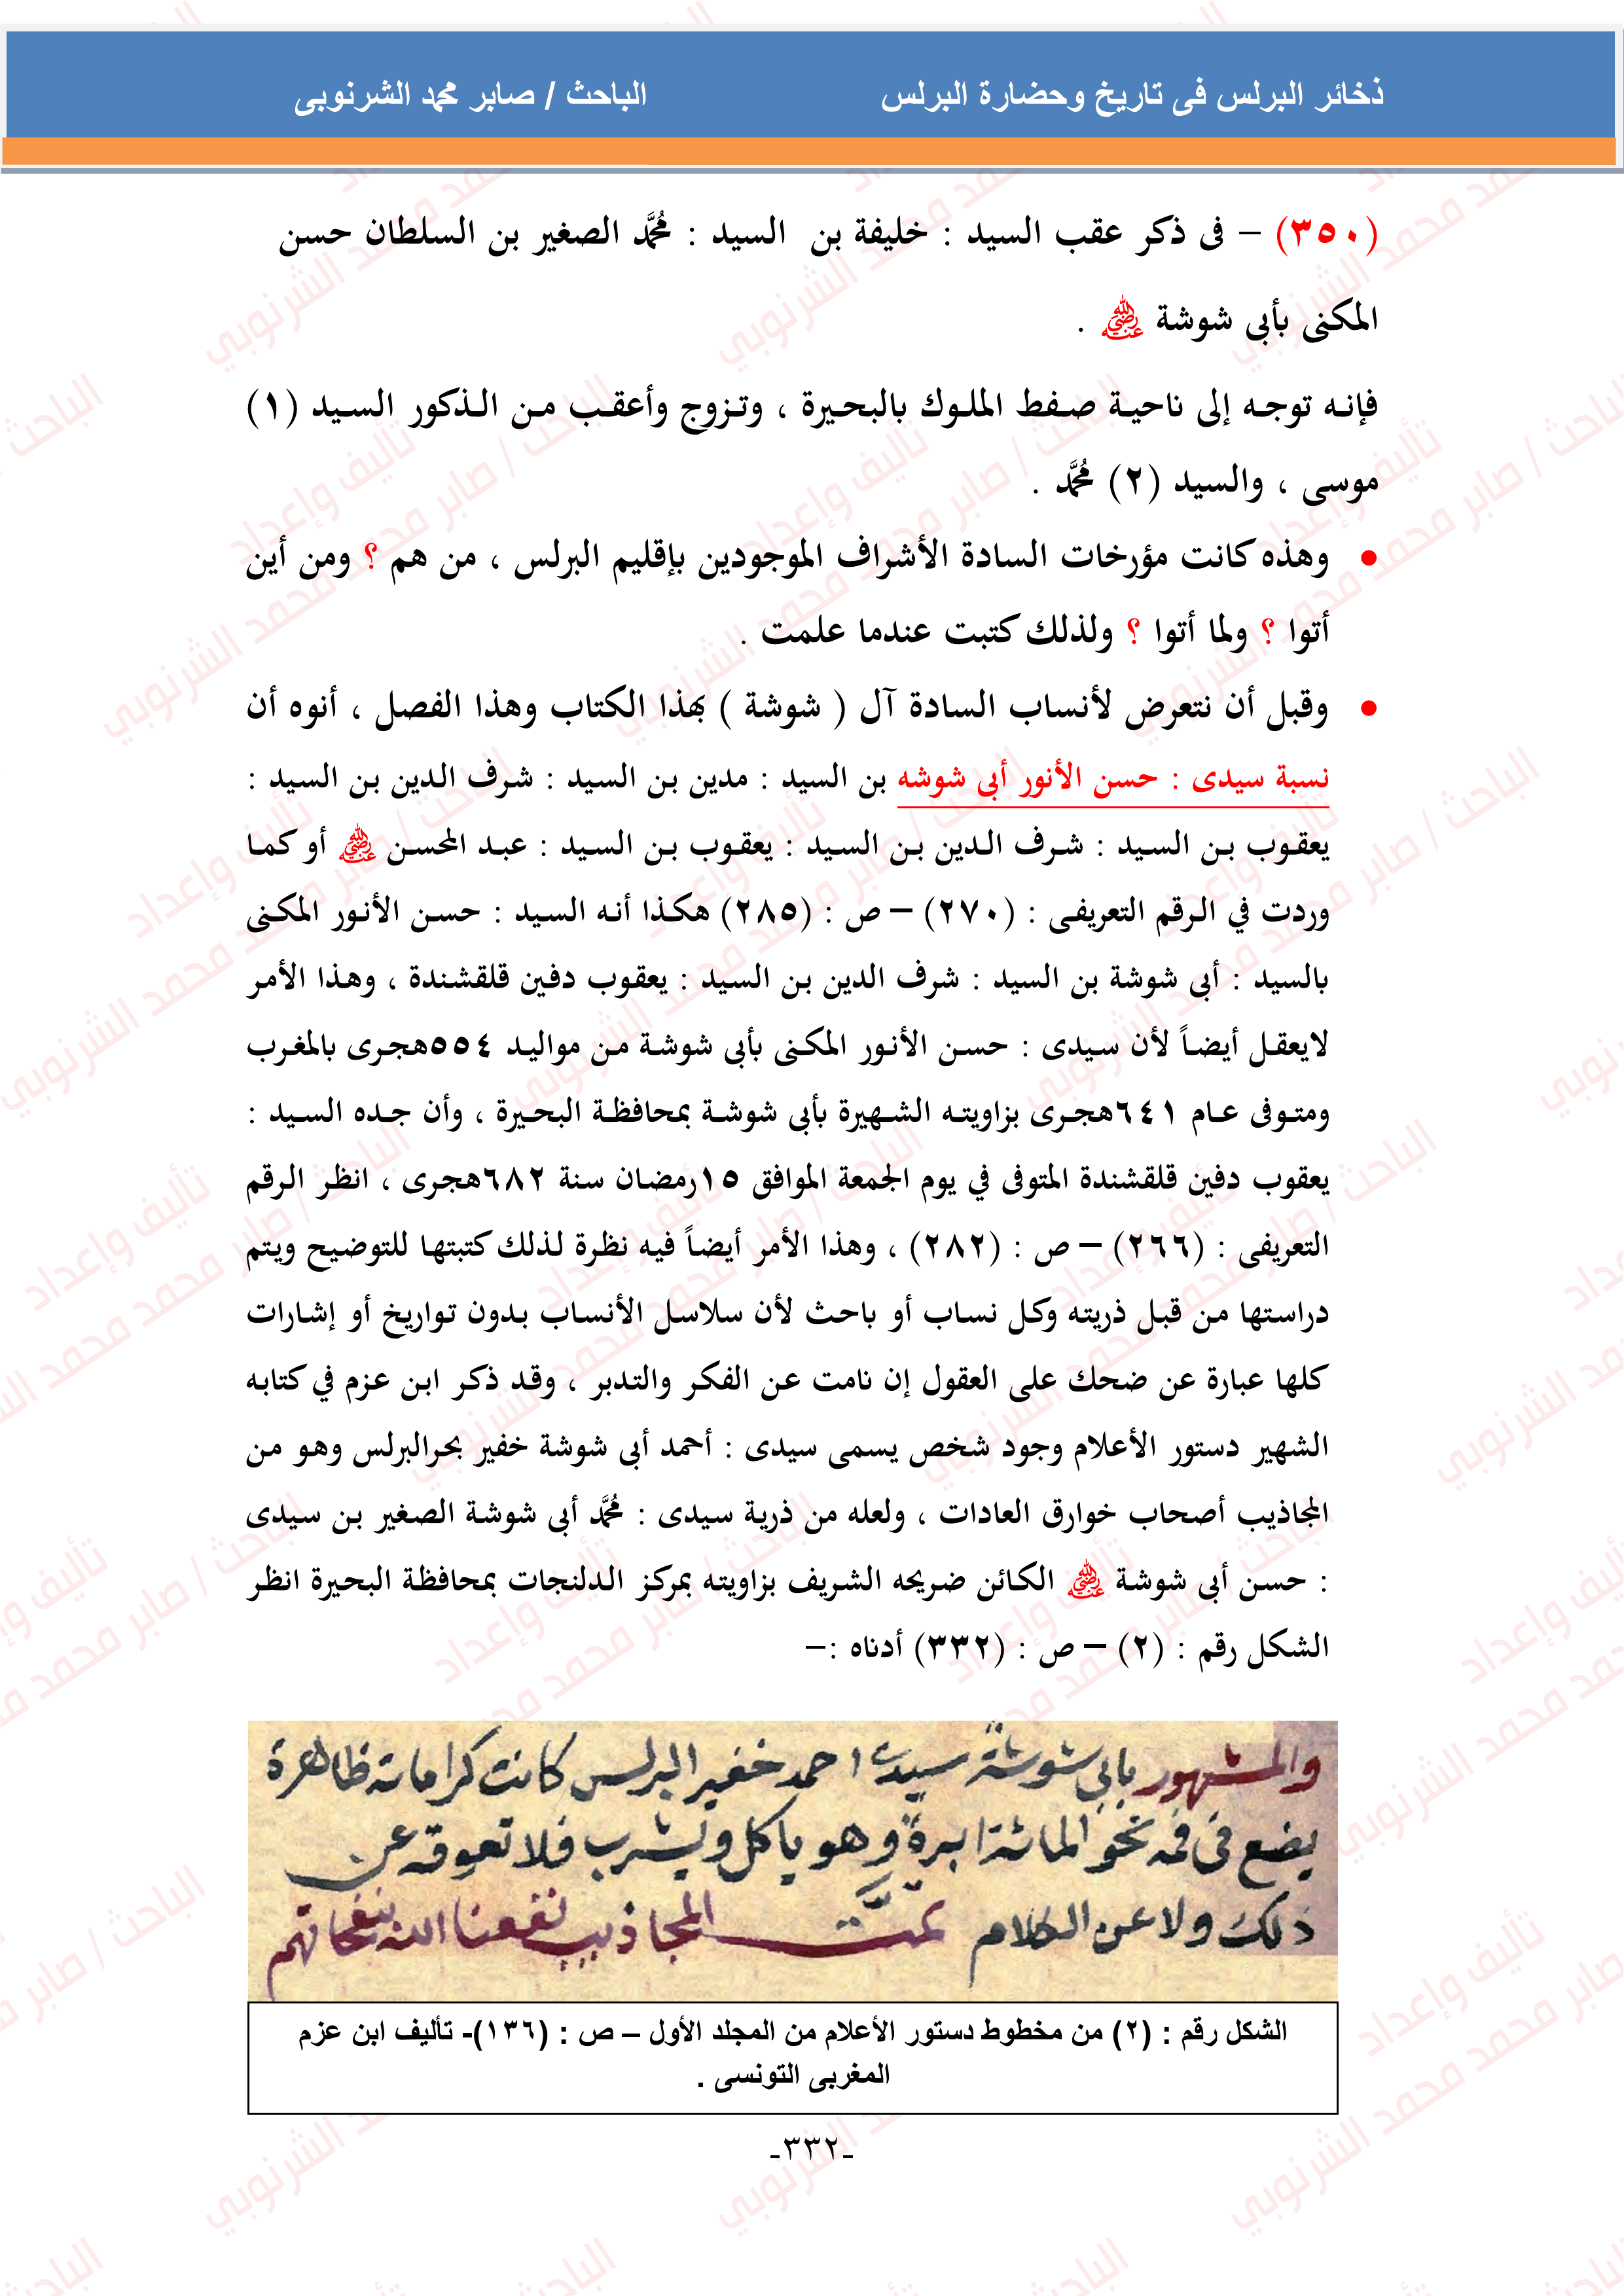 ذخائر البرلس فى تاريخ وحضارة البرلس الباحث / صابر محمد الشرنوبى
(٣٥٠) – فى ذكر عقب السيد : خليفة بن السيد : مُحَمَّد الصغير بن السلطان حسن
المكنى بأبى شوشة رضي الله عنه .
فإنه توجه إلى ناحية صفط الملوك بالبحيرة ، وتزوج وأعقب من الذكور السيد (١)
موسى ، والسيد (٢) مُحَمَّد .
• وهذه كانت مؤرخات السادة الأشراف الموجودين بإقليم البرلس ، من هم ؟ ومن أين
أتوا ؟ ولما أتوا ؟ ولذلك كتبت عندما علمت .
• وقبل أن نتعرض لأنساب السادة آل ( شوشة ) بهذا الكتاب وهذا الفصل ، أنوه أن
نسبة سيدى : حسن الأنور أبى شوشه بن السيد : مدين بن السيد : شرف الدين بن السيد :
يعقوب بن السيد : شرف الدين بن السيد : يعقوب بن السيد : عبد المحسن رضي الله عنه أو كما
وردت في الرقم التعريفى : (٢٧٠) – ص : (٢٨٥) هكذا أنه السيد : حسن الأنور المكنى
بالسيد : أبى شوشة بن السيد : شرف الدين بن السيد : يعقوب دفين قلقشندة ، وهذا الأمر
لايعقل أيضاً لأن سيدى : حسن الأنور المكنى بأبى شوشة من مواليد ٥٥٤هجرى بالمغرب
ومتوفى عام ٦٤١هجرى بزاويته الشهيرة بأبى شوشة بمحافظة البحيرة ، وأن جده السيد :
يعقوب دفين قلقشندة المتوفى في يوم الجمعة الموافق ١٥رمضان سنة ٦٨٢هجرى ، انظر الرقم
التعريفى : (٢٦٦) – ص : (٢٨٢) ، وهذا الأمر أيضاً فيه نظرة لذلك كتبتها للتوضيح ويتم
دراستها من قبل ذريته وكل نساب أو باحث لأن سلاسل الأنساب بدون تواريخ أو إشارات
كلها عبارة عن ضحك على العقول إن نامت عن الفكر والتدبر ، وقد ذكر ابن عزم في كتابه
الشهير دستور الأعلام وجود شخص يسمى سيدى : أحمد أبى شوشة خفير بحرالبرلس وهو من
المجاذيب أصحاب خوارق العادات ، ولعله من ذرية سيدى : مُحَمَّد أبى شوشة الصغير بن سيدى
: حسن أبى شوشة رضي الله عنه الكائن ضريحه الشريف بزاويته بمركز الدلنجات بمحافظة البحيرة انظر
الشكل رقم : (٢) – ص : (٣٣٢) أدناه :–
والمشهور بابى شوشة سيدى احمد خفير البرلس كانت كراماته ظاهرة
يضع فى فمه نحو المائة ابرة وهو ياكل ويشرب فلا تعوقه عن
ذلك ولا عن الكلام تمت المجاذيب نفعنا الله بنفحاتهم
الشكل رقم : (٢) من مخطوط دستور الأعلام من المجلد الأول – ص : (١٣٦)- تأليف ابن عزم
المغربى التونسى .
-٣٣٢-
تأليف وإعداد
الباحث / صابر محمد محمد الشرنوبي